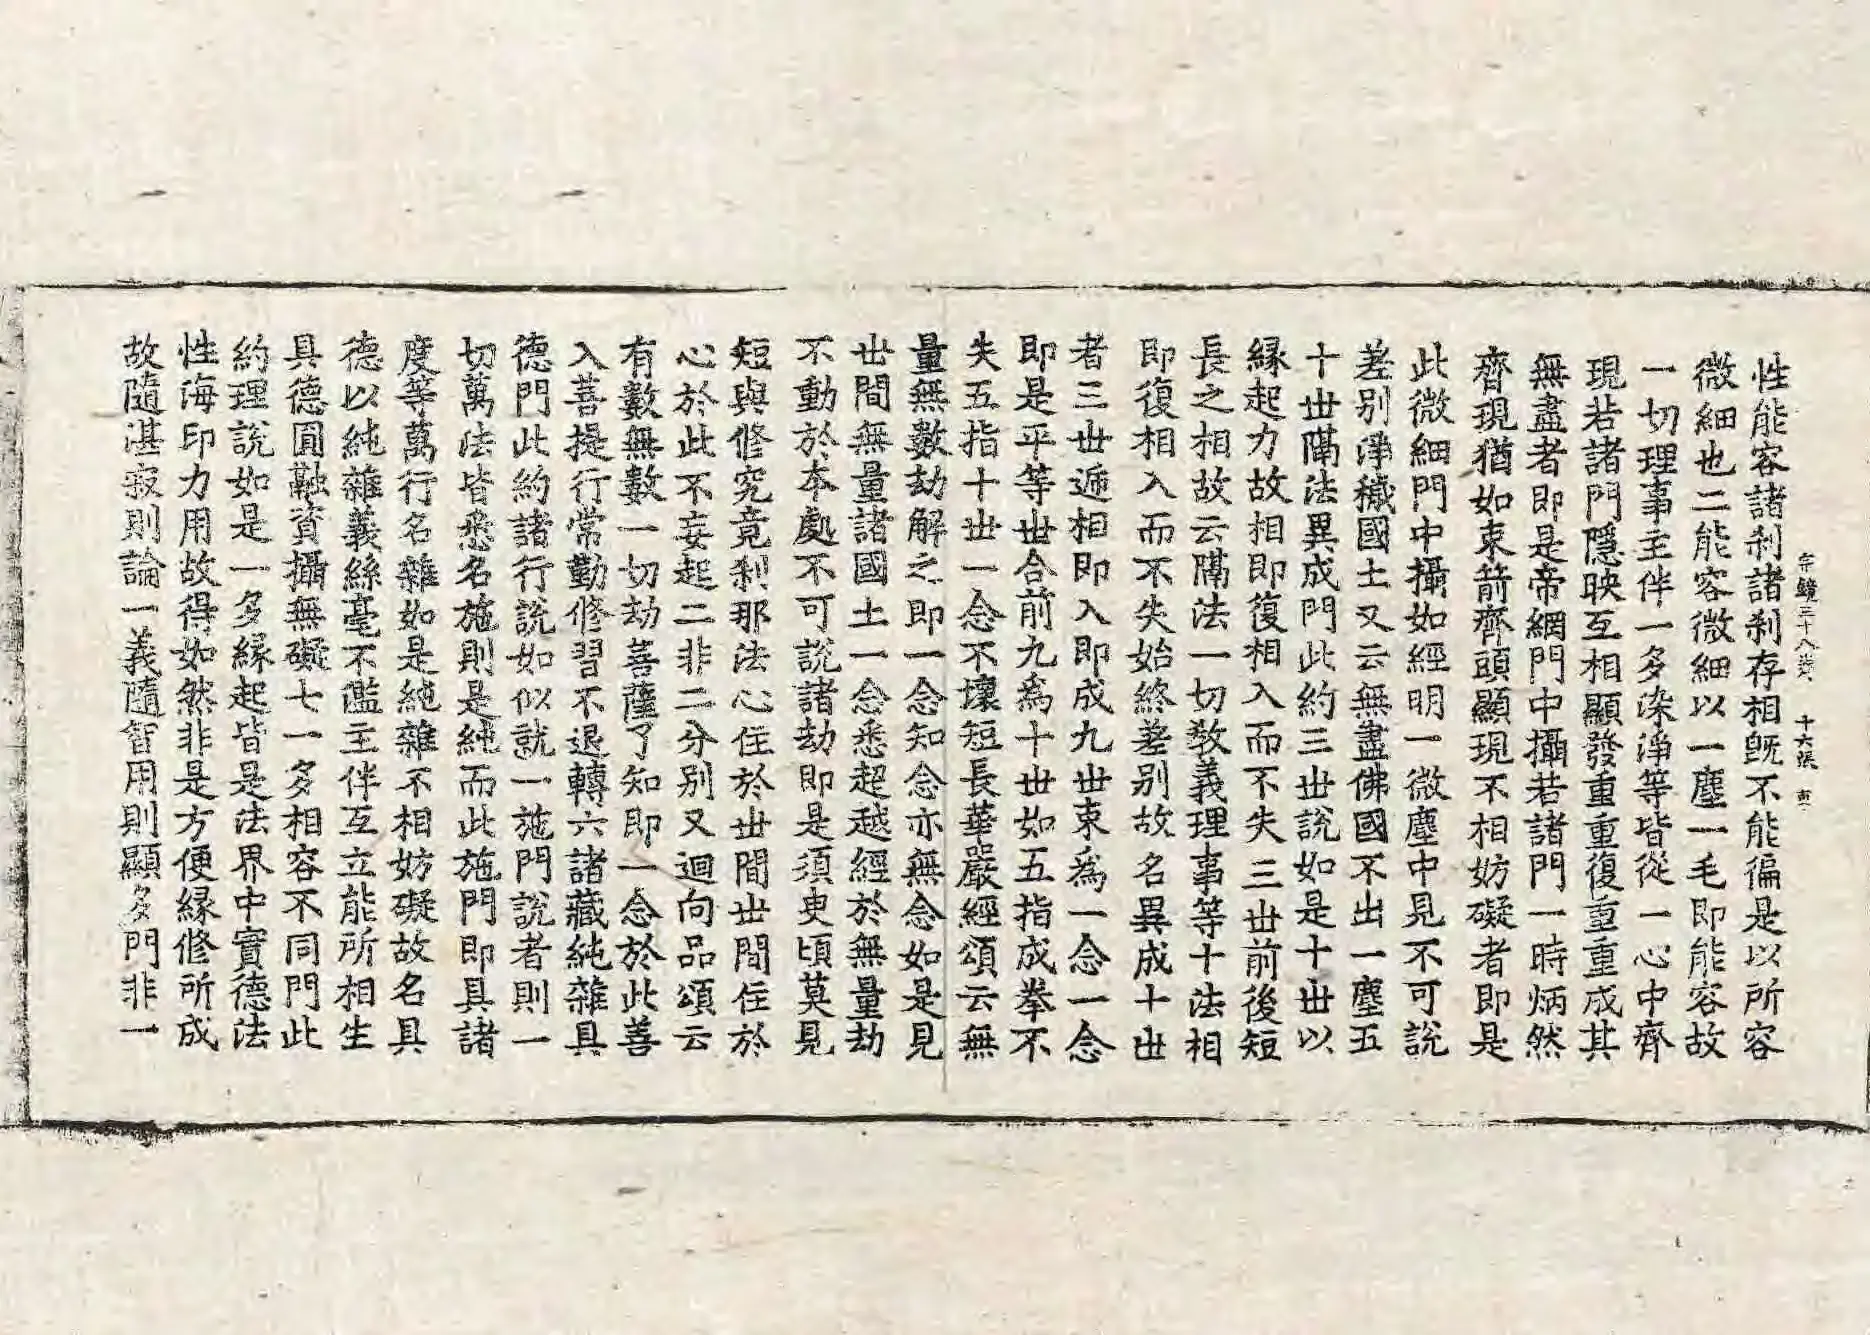 宗鏡三十八卷 十六張
性能容諸刹諸刹存相旣不能徧是以所容
微細也二能容微細以一塵一毛即能容故
一切理事主伴一多染淨等皆從一心中齊
現若諸門隱映互相顯發重重復重重成其
無盡者即是帝網門中攝若諸門一時炳然
齊現猶如束箭齊頭顯現不相妨礙者即是
此微細門中攝如經明一微塵中見不可說
差別淨穢國土又云無盡佛國不出一塵五
十世隔法異成門此約三世說如是十世以
緣起力故相即復相入而不失三世前後短
長之相故云隔法一切教義理事等十法相
即復相入而不失始終差別故名異成十世
者三世遞相即入即成九世束爲一念一念
即是平等世合前九爲十世如五指成拳不
失五指十世一念不壞短長華嚴經頌云無
量無數劫解之即一念知念亦無念如是見
世間無量諸國土一念悉超越經於無量劫
不動於本處不可說諸劫即是須臾頃莫見
短與修究竟刹那法心住於世間世間住於
心於此不妄起二非二分別又迴向品頌云
有數無數一切劫菩薩了知即一念於此善
入菩提行常勤修習不退轉六諸藏純雜具
德門此約諸行說如似就一施門說者則一
切萬法皆悉名施則是純而此施門即具諸
度等萬行名雜如是純雜不相妨礙故名具
德以純雜義絲毫不濫主伴互立能所相生
具德圓融資攝無礙七一多相容不同門此
約理說如是一多緣起皆是法界中實德法
性海印力用故得如然非是方便緣修所成
故隨湛寂則論一義隨智用則顯多門非一